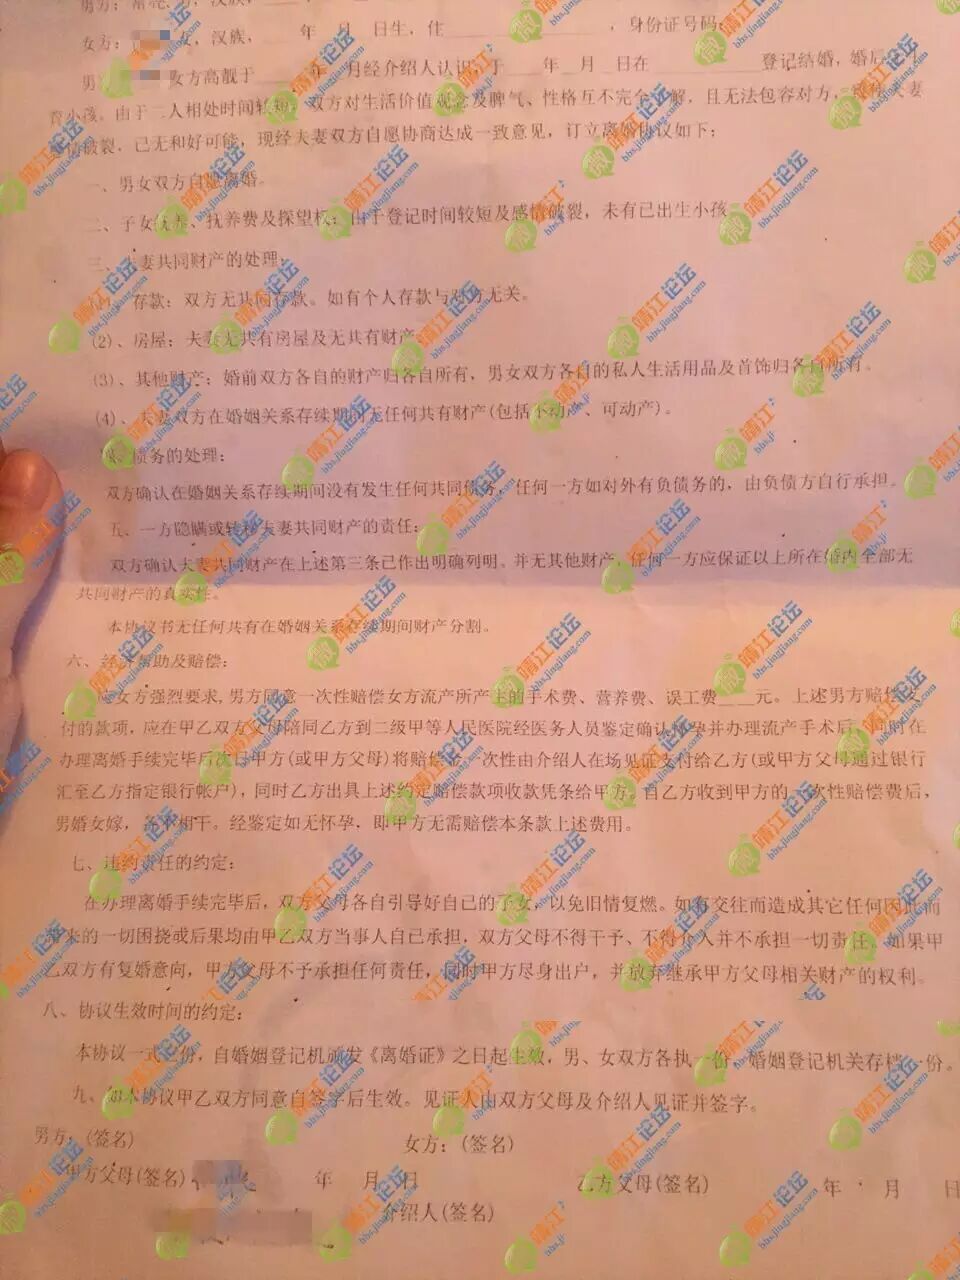 男方：常亮，男，汉族，　　年　月　日生，住
女方：　　女，汉族，　　年　月　日生，住　　　　　　，身份证号码：
男方　　女方高靓于　　年　月经介绍人认识，于　　年　月　日在　　　　登记结婚，婚后
育小孩。由于二人相处时间较短，双方对生活价值观念及脾气、性格互不完全了解，且无法包容对方，致使夫妻
感情破裂，已无和好可能，现经夫妻双方自愿协商达成一致意见，订立离婚协议如下：
一、男女双方自愿离婚。
二、子女抚养、抚养费及探望权：由于登记时间较短及感情破裂，未有已出生小孩
三、夫妻共同财产的处理：
存款：双方无共同存款。如有个人存款与对方无关。
(2)、房屋：夫妻无共有房屋及无共有财产
(3)、其他财产：婚前双方各自的财产归各自所有，男女双方各自的私人生活用品及首饰归各自所有。
(4)、夫妻双方在婚姻关系存续期间无任何共有财产(包括不动产、可动产)。
四、债务的处理：
双方确认在婚姻关系存续期间没有发生任何共同债务，任何一方如对外有负债务的，由负债方自行承担。
五、一方隐瞒或转移夫妻共同财产的责任：
双方确认夫妻共同财产在上述第三条已作出明确列明。并无其他财产，任何一方应保证以上所在婚内全部无
共同财产的真实性。
本协议书无任何共有在婚姻关系存续期间财产分割。
六、经济帮助及赔偿：
应女方强烈要求，男方同意一次性赔偿女方流产所产生的手术费、营养费、误工费　　元。上述男方赔偿支
付的款项，应在甲乙双方父母陪同乙方到二级甲等人民医院经医务人员鉴定确认怀孕并办理流产手术后，同时在
办理离婚手续完毕后次日甲方(或甲方父母)将赔偿金一次性由介绍人在场见证支付给乙方(或甲方父母通过银行
汇至乙方指定银行帐户)，同时乙方出具上述约定赔偿款项收款凭条给甲方。自乙方收到甲方的一次性赔偿费后，
男婚女嫁，各不相干。经鉴定如无怀孕，即甲方无需赔偿本条款上述费用。
七、违约责任的约定：
在办理离婚手续完毕后，双方父母各自引导好自己的子女，以免旧情复燃。如有交往而造成其它任何因此而
带来的一切困挠或后果均由甲乙双方当事人自己承担，双方父母不得干予、不得介人并不承担一切责任，如果甲
乙双方有复婚意向，甲方父母不予承担任何责任，同时甲方尽身出户，并放弃继承甲方父母相关财产的权利。
八、协议生效时间的约定：
本协议一式　份，自婚姻登记机颁发《离婚证》之日起生效，男、女双方各执一份，婚姻登记机关存档一份。
九、如本协议甲乙双方同意自签字后生效。见证人由双方父母及介绍人见证并签字。
男方：(签名)　　女方：(签名)
甲方父母(签名)　　年　月　日　　乙方父母(签名)　　年　月　日
介绍人(签名)
靖江论坛
bbs.jingjiang.com